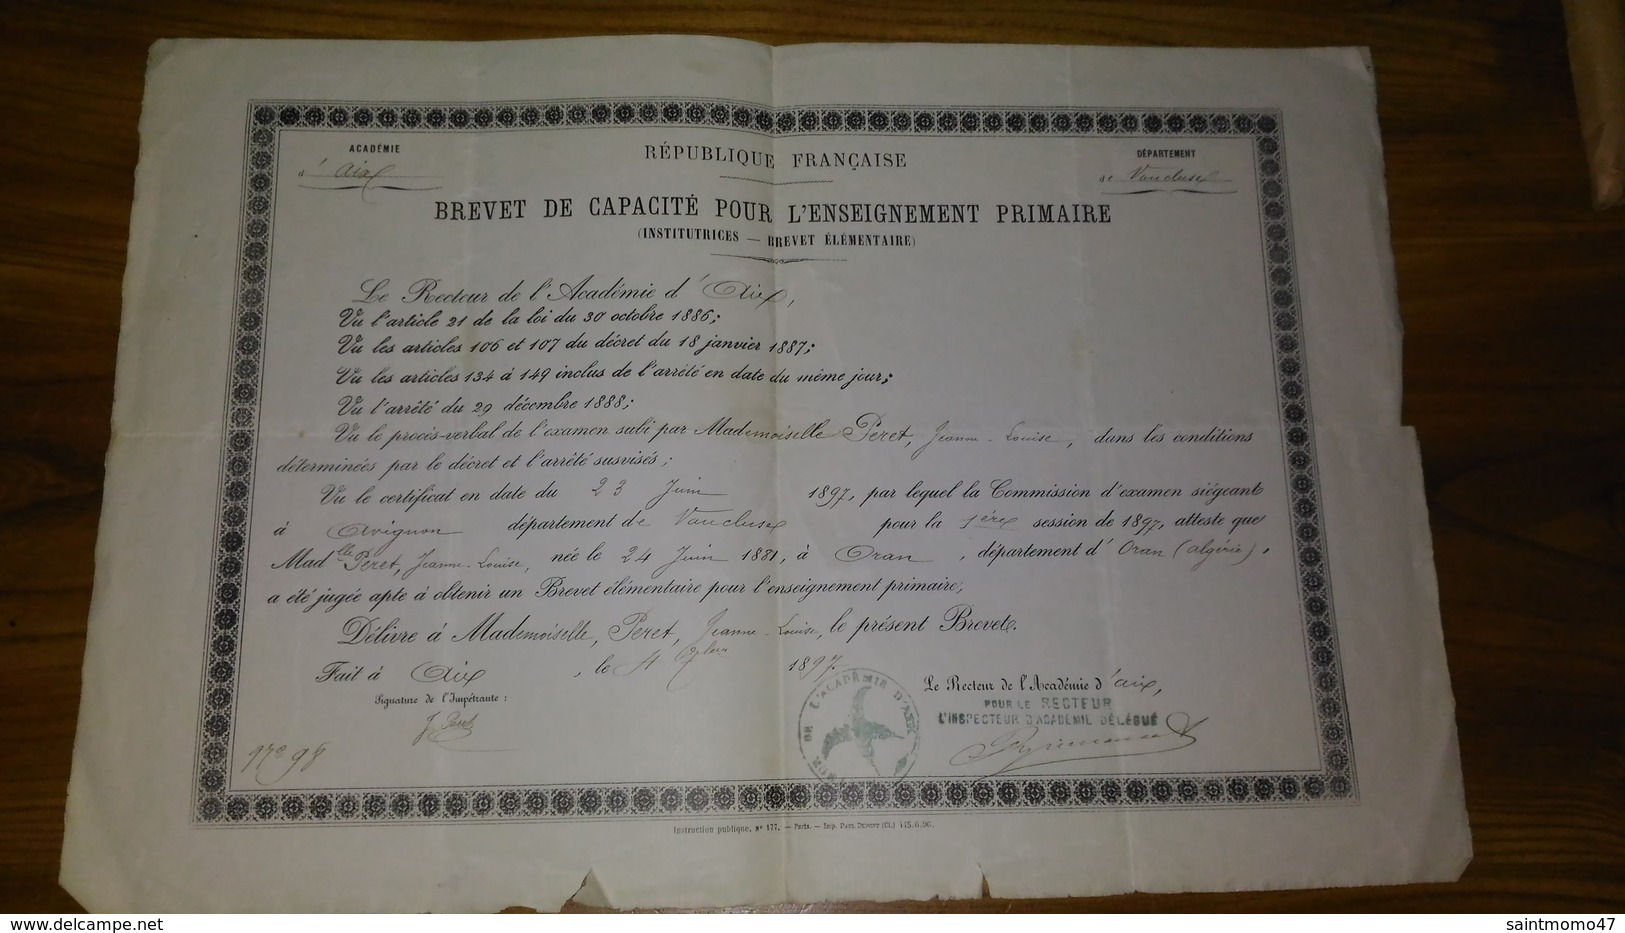 ACADÉMIE
d'Aix
RÉPUBLIQUE FRANÇAISE
DÉPARTEMENT
de Vaucluse
BREVET DE CAPACITÉ POUR L'ENSEIGNEMENT PRIMAIRE
(INSTITUTRICES — BREVET ÉLÉMENTAIRE)
Le Recteur de l'Académie d'Aix,
Vu l'article 21 de la loi du 30 octobre 1886;
Vu les articles 106 et 107 du décret du 18 janvier 1887;
Vu les articles 134 à 149 inclus de l'arrêté en date du même jour;
Vu l'arrêté du 29 décembre 1888;
Vu le procès-verbal de l'examen subi par Mademoiselle Péret, Jeanne-Louise, dans les conditions
déterminées par le décret et l'arrêté susvisés;
Vu le certificat en date du 23 Juin 1897, par lequel la Commission d'examen siégeant
à Avignon département de Vaucluse pour la 1ère session de 1897, atteste que
Madlle Péret, Jeanne-Louise, née le 24 Juin 1881, à Oran, département d'Oran (algérie),
a été jugée apte à obtenir un Brevet élémentaire pour l'enseignement primaire,
Délivre à Mademoiselle, Péret, Jeanne-Louise, le présent Brevet.
Fait à Aix, le 1897.
Signature de l'Impétrante :
J. Péret
Nº 98
DE L'ACADÉMIE D'AIX
Le Recteur de l'Académie d'aix,
POUR LE RECTEUR
L'INSPECTEUR D'ACADÉMIE DÉLÉGUÉ
Instruction publique, Nº 177. — Paris. — Imp. Paul Dupont (Cl.)
www.delcampe.net
saintmomo47